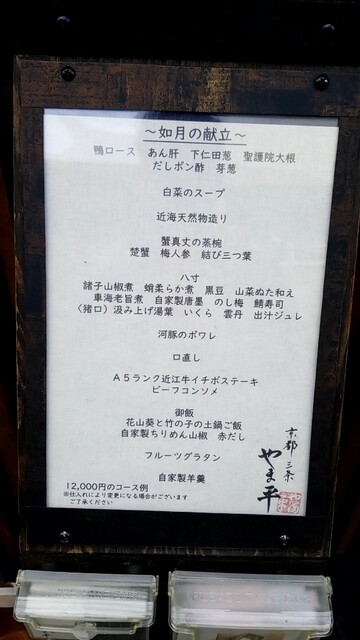 ～如月の献立～
鴨ロース　あん肝　下仁田葱　聖護院大根
だしポン酢　芽葱
白菜のスープ
近海天然物造り
蟹真丈の蒸椀
楚蟹　梅人参　結び三つ葉
八寸
諸子山椒煮　蛸柔らか煮　黒豆　山菜ぬた和え
車海老旨煮　自家製唐墨　のし梅　鯖寿司
（猪口）汲み上げ湯葉　いくら　雲丹　出汁ジュレ
河豚のポワレ
口直し
Ａ５ランク近江牛イチボステーキ
ビーフコンソメ
御飯
花山葵と竹の子の土鍋ご飯
自家製ちりめん山椒　赤だし
フルーツグラタン
自家製羊羹
12,000円のコース例
※仕入れにより変更になる場合がございます
ご了承ください
京都三条
やま平